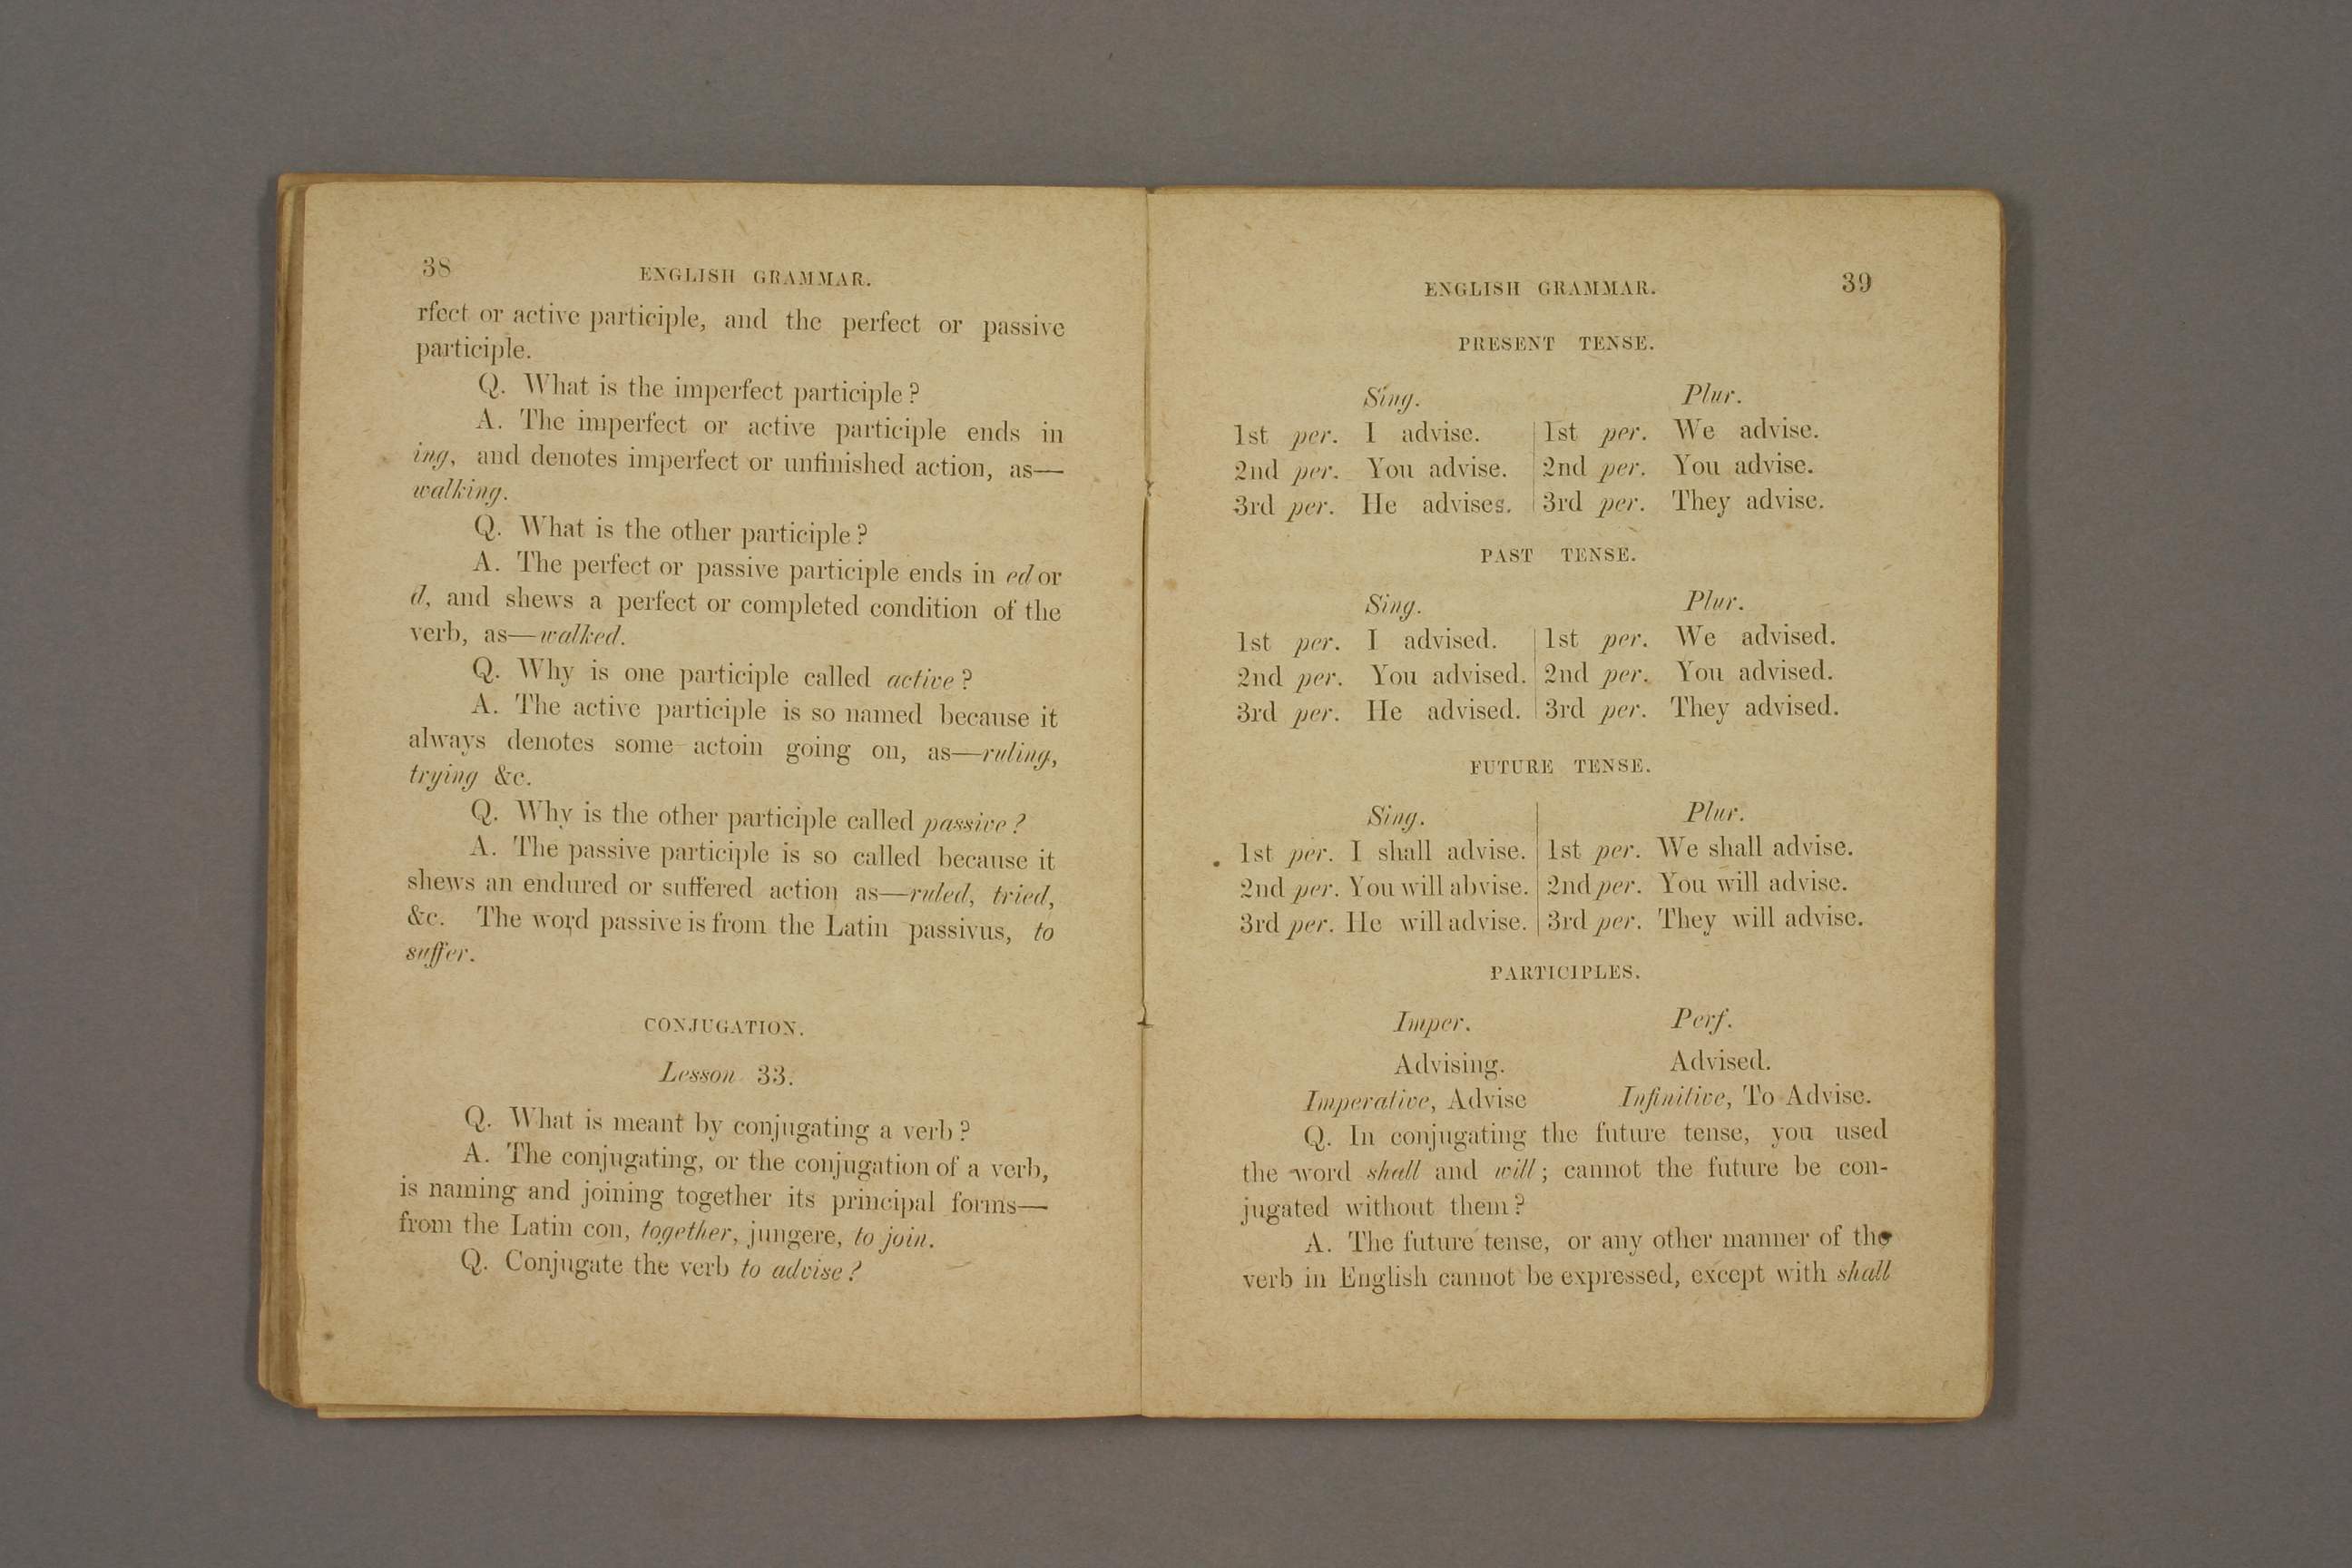 38
ENGLISH GRAMMAR.
rfect or active participle, and the perfect or passive
participle.
Q. What is the imperfect participle?
A. The imperfect or active participle ends in
ing, and denotes imperfect or unfinished action, as—
walking.
Q. What is the other participle?
A. The perfect or passive participle ends in ed or
d, and shews a perfect or completed condition of the
verb, as—walked.
Q. Why is one participle called active?
A. The active participle is so named because it
always denotes some actoin going on, as—ruling,
trying &c.
Q. Why is the other participle called passive?
A. The passive participle is so called because it
shews an endured or suffered action as—ruled, tried,
&c. The word passive is from the Latin passivus, to
suffer.
CONJUGATION.
Lesson 33.
Q. What is meant by conjugating a verb?
A. The conjugating, or the conjugation of a verb,
is naming and joining together its principal forms—
from the Latin con, together, jungere, to join.
Q. Conjugate the verb to advise?
ENGLISH GRAMMAR. 39
PRESENT TENSE.
Sing. Plur.
1st per. I advise. 1st per. We advise.
2nd per. You advise. 2nd per. You advise.
3rd per. He advises. 3rd per. They advise.
PAST TENSE.
Sing. Plur.
1st per. I advised. 1st per. We advised.
2nd per. You advised. 2nd per. You advised.
3rd per. He advised. 3rd per. They advised.
FUTURE TENSE.
Sing. Plur.
1st per. I shall advise. 1st per. We shall advise.
2nd per. You will abvise. 2nd per. You will advise.
3rd per. He will advise. 3rd per. They will advise.
PARTICIPLES.
Imper. Perf.
Advising. Advised.
Imperative, Advise Infinitive, To Advise.
Q. In conjugating the future tense, you used
the word shall and will; cannot the future be con-
jugated without them?
A. The future tense, or any other manner of the
verb in English cannot be expressed, except with shall